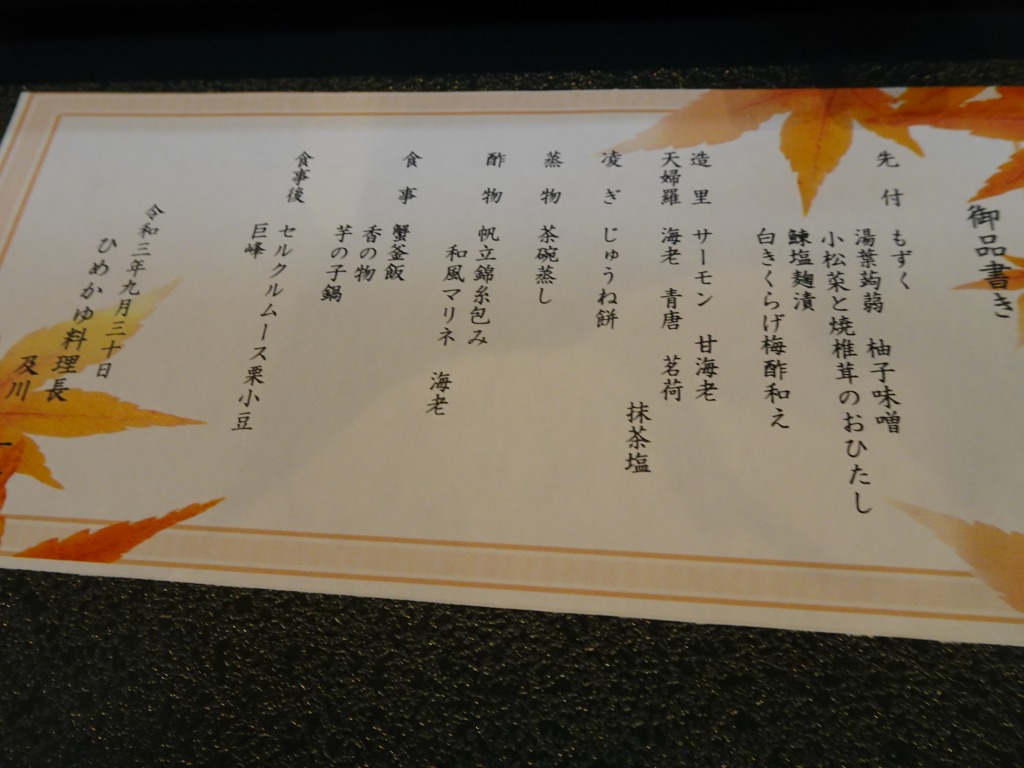 御品書き
先付 もずく
湯葉蒟蒻 柚子味噌
小松菜と焼椎茸のおひたし
鰊塩麹漬
白きくらげ梅酢和え
造里 サーモン 甘海老
天婦羅 海老 青唐 茗荷
抹茶塩
凌ぎ じゅうね餅
蒸物 茶碗蒸し
酢物 帆立錦糸包み
和風マリネ 海老
食事 蟹釜飯
香の物
芋の子鍋
食事後 セルクルムース栗小豆
巨峰
令和三年九月三十日
ひめかゆ料理長
及川